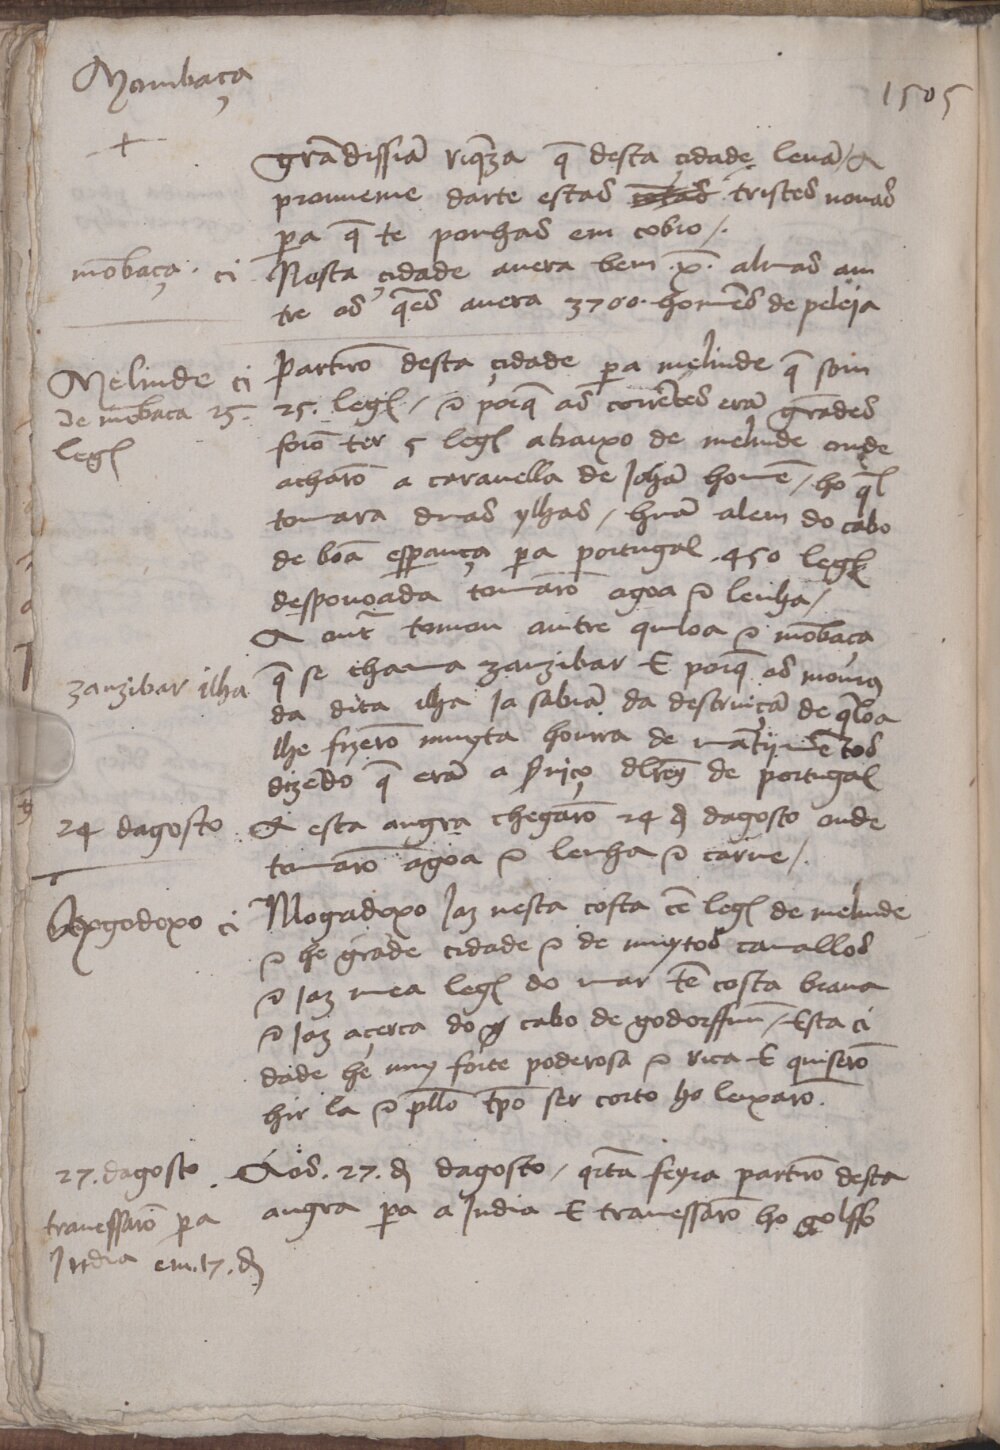 Mombaça
1505
+
grãdissiã riq̃za q̃ desta çidade leuã / A
prouueme darte estas tristes nouas
p̃a q̃ te ponhas em cobro /.
mõbaça. ci
Nesta çidade auera bem .x. almas an
tre os q̃es auera 3700. homẽs de peleja
Melinde ci
de mõbaca 25.
legˢ
Partirõ desta çidade p̃a melinde q̃ som
25. legˢ / & porq̃ as corrẽtes erã grãdes
forõ ter 5 legˢ abaixo de melinde onde
acharõ a carauella de Johã homẽ / ho q̃l
tomara duas ylhas / huã alem do cabo
de boã esp̃ança p̃a portugal .450 legˢ
despouoada tomarõ agoa & lenha /
A outˢ tomou antre quiloa & mõbaça
zanzibar ilha
q̃ se chama zanzibar E porq̃ os mouros
da dita ilha Ja sabiã da destruiçã de q̃loa
lhe fizerõ muyta honrra de mãtijmẽtos
dizẽdo q̃ erã a s̃uiço dlrey de portugal
24 dagosto
A esta angra chegarõ 24 dˢ dagosto onde
tomarõ agoa & lenha & carne /.
Mogodoxo ci
Mogadoxo Jaz nesta costa cẽ legˢ de melinde
& he grãde cidade & de muytos cauallos
& Jaz mea legˢ do mar tẽ costa braua
& Jaz açerca do cabo de godorffuu / Esta ci
dade he muy forte poderosa & rica E quiserõ
hir la & pllo tp̃o ser corto ho leixarõ.
27. dagosto
trauessarõ p̃a
India em .17. dˢ
Aos .27. dˢ dagosto / qrtã feyra partirõ desta
angra p̃a a India E trauessarõ ho golffo